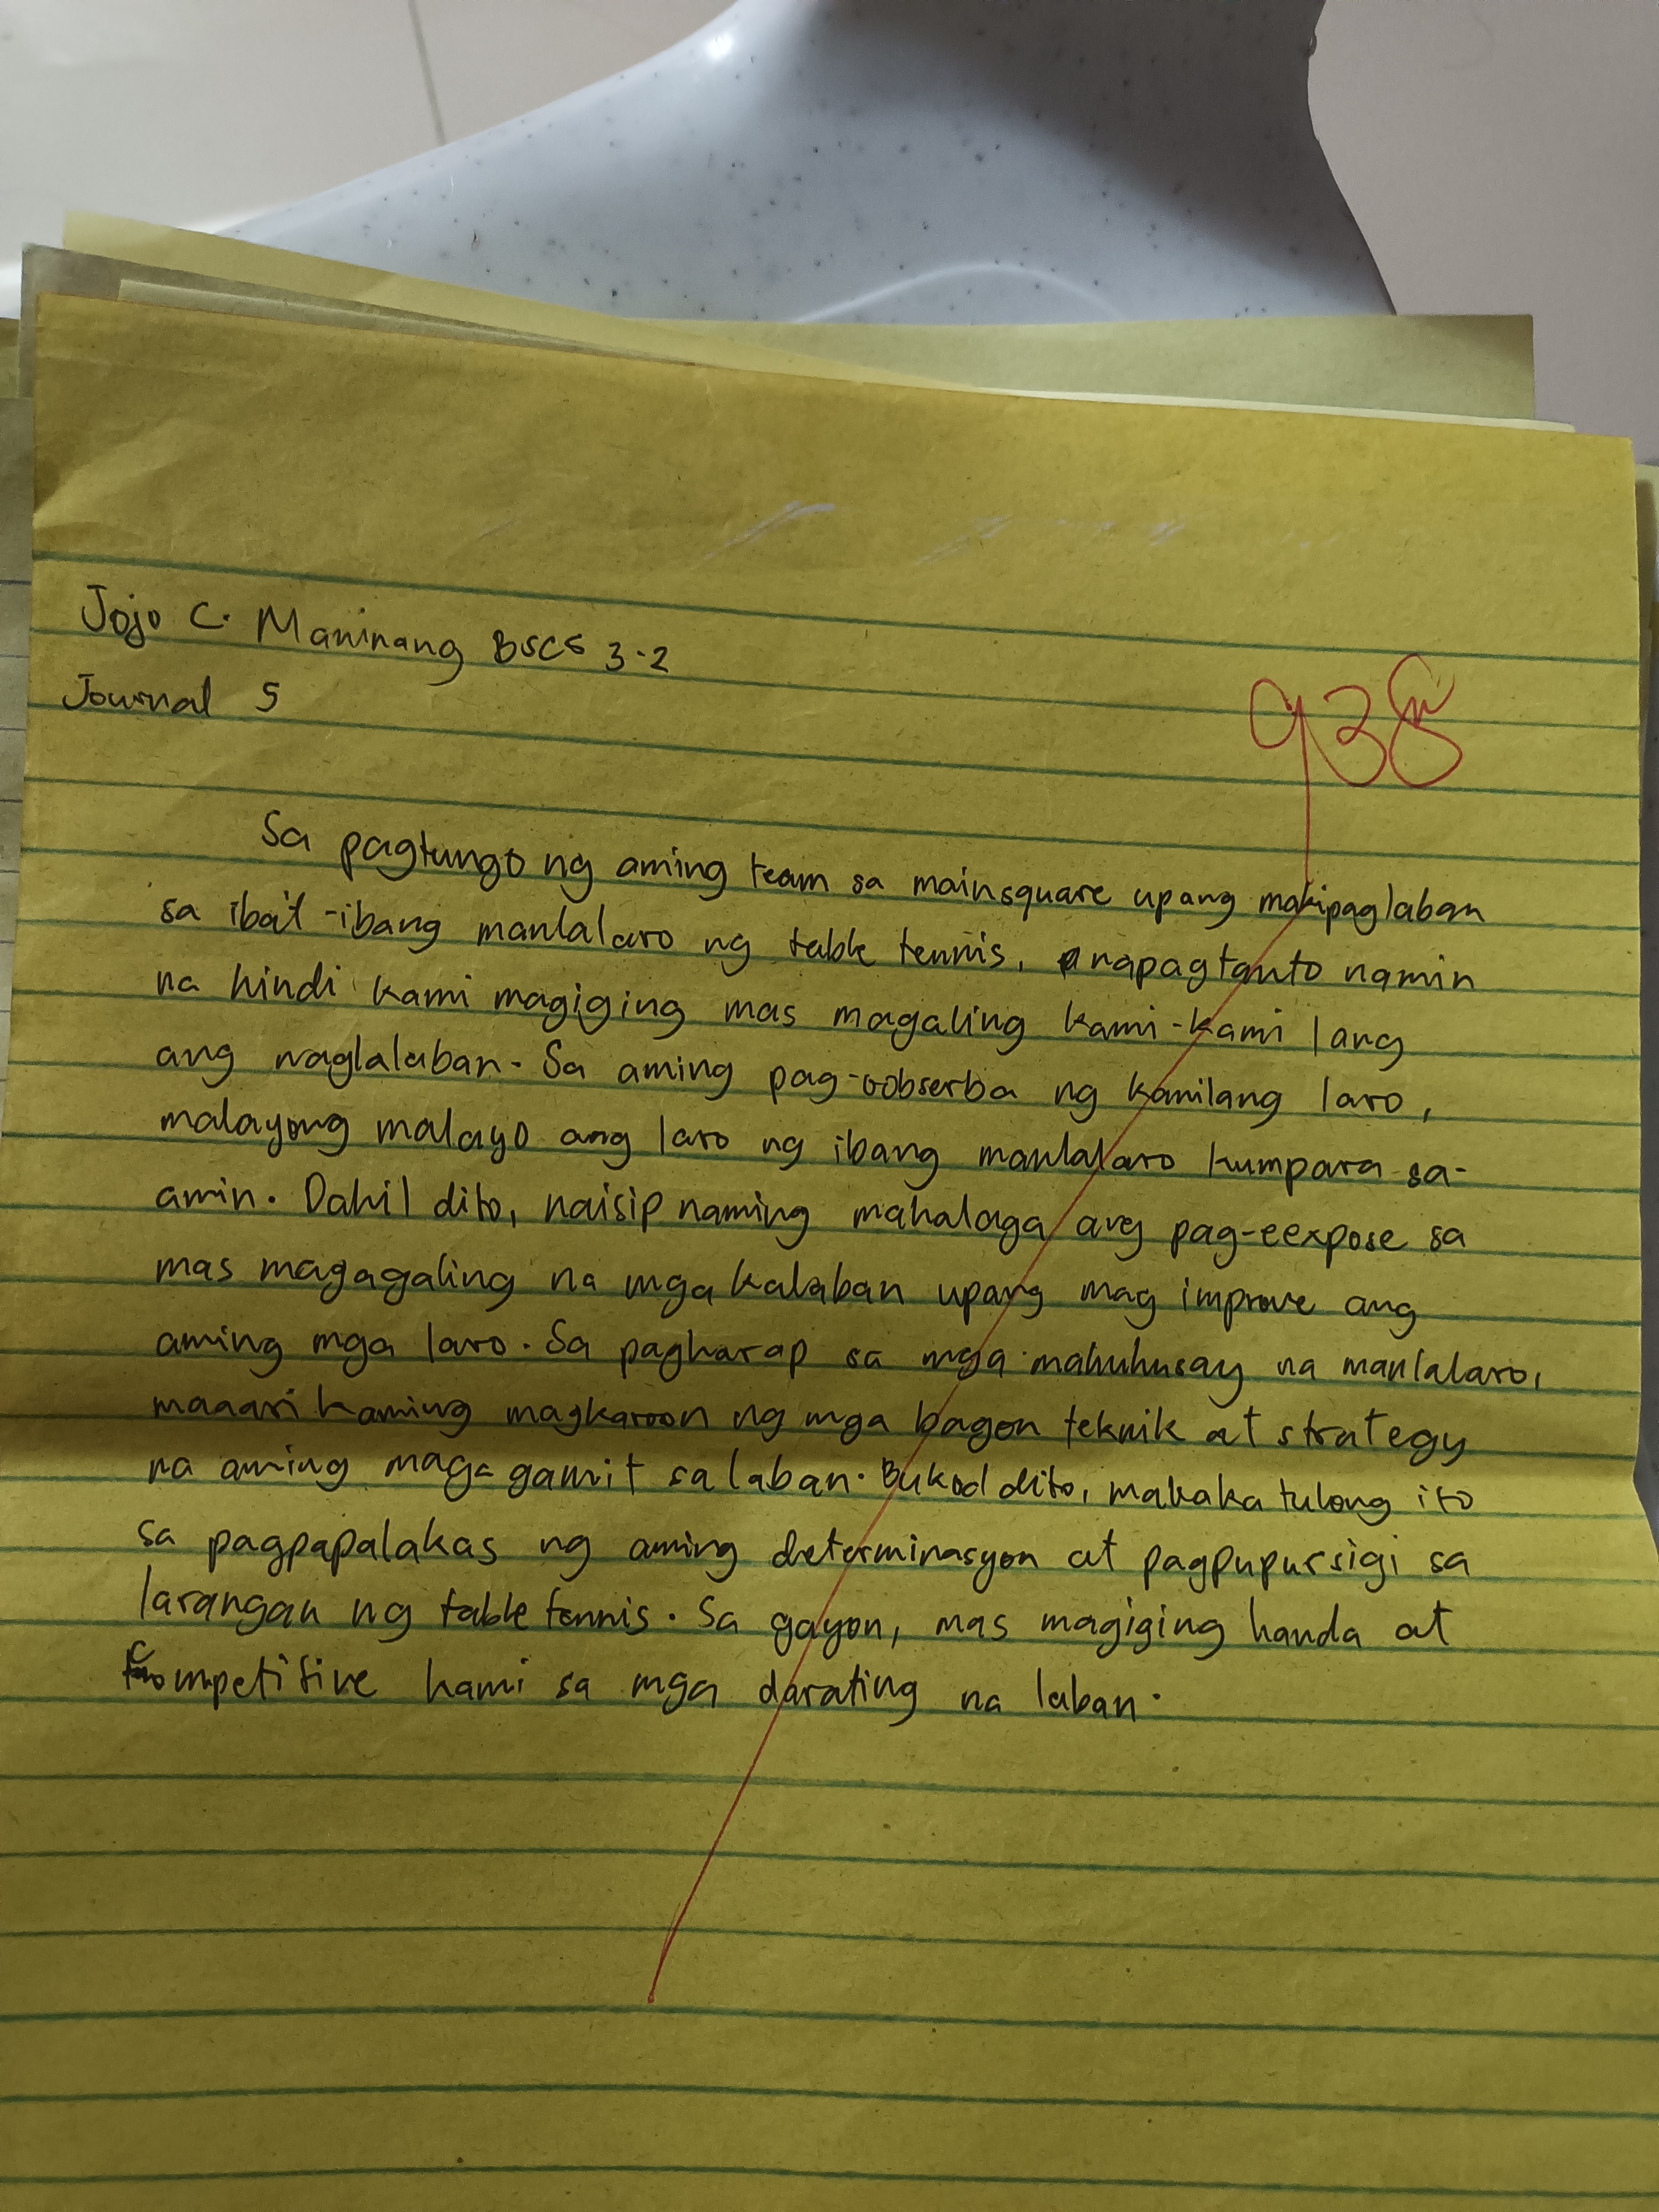 Jojo C. Maninang BSCS 3-2
Journal 5
93
Sa pagtungo ng aming team sa mainsquare upang makipaglaban
sa ibat-ibang manlalaro ng table tennis, napagtanto namin
na hindi kami magiging mas magaling kami-kami lang
ang naglalaban. Sa aming pag-oobserba ng kanilang laro,
malayong malayo ang laro ng ibang manlalaro kumpara sa-
amin. Dahil dito, naisip naming mahalaga ang pag-eexpose sa
mas magagaling na mga kalaban upang mag improve ang
aming mga laro. Sa pagharap sa mga mahuhusay na manlalaro,
maaari kaming magkaroon ng mga bagon teknik at strategy
na aming maga gamit sa laban. Bukod dito, makaka tulong ito
sa pagpapalakas ng aming determinasyon at pagpupursigi sa
larangan ng table tennis. Sa gayon, mas magiging handa at
competitive kami sa mga darating na laban.